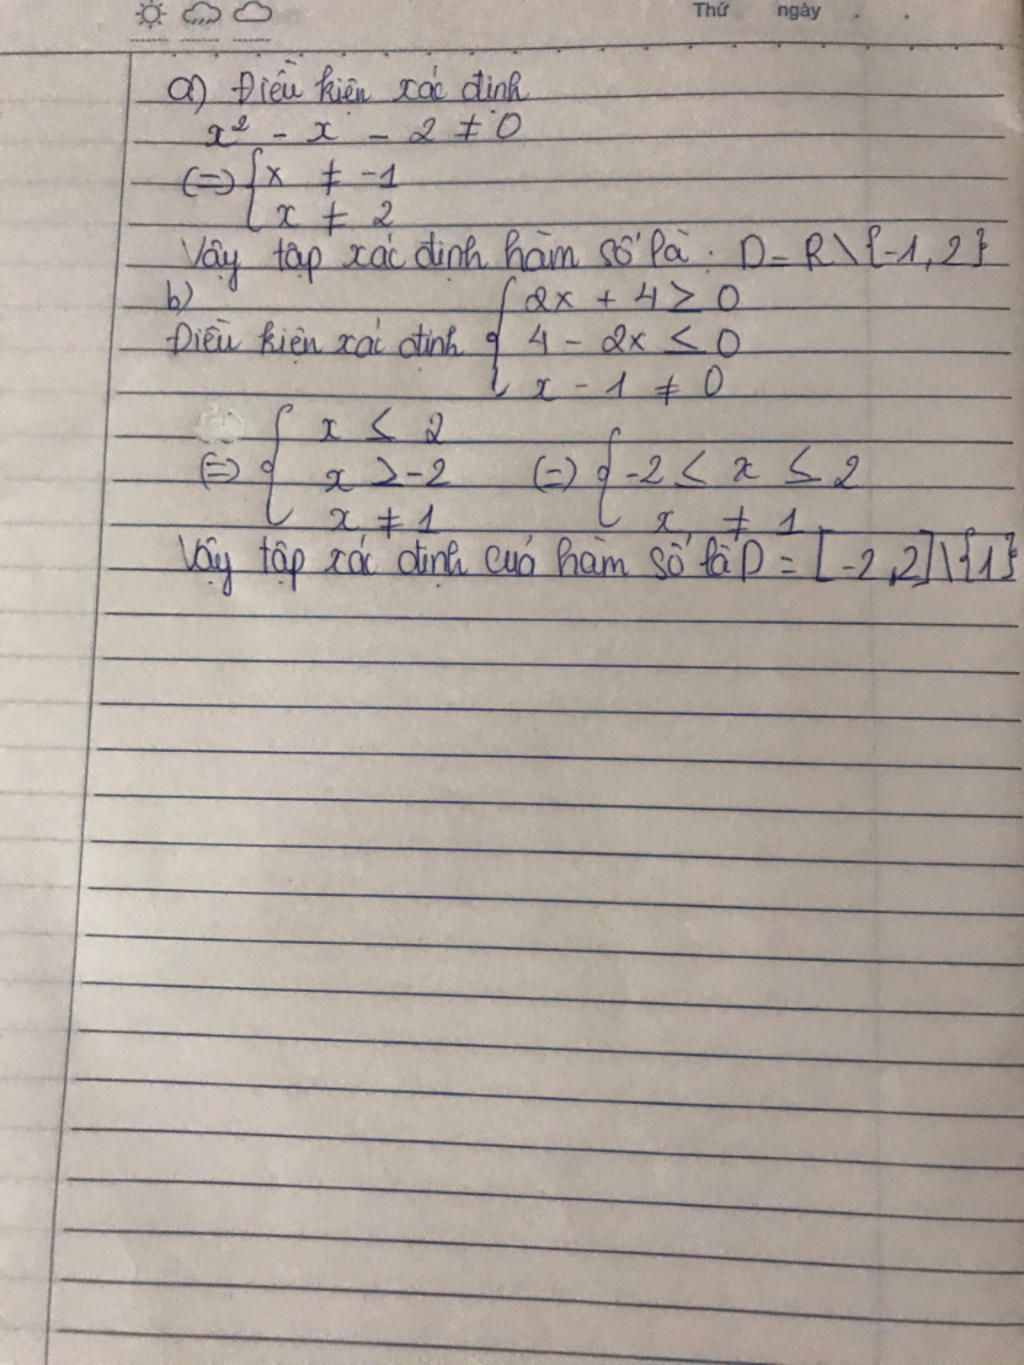 Thứ ngày . .
a) Điều kiện xác định
x² - x - 2 ≠ 0
(=) { x ≠ -1
x ≠ 2
Vậy tập xác định hàm số là : D = R \ {-1, 2}
b) { 2x + 4 ≥ 0
Điều kiện xác định 4 - 2x ≤ 0
x - 1 ≠ 0
{ x ≤ 2
(=) x > -2 (=) { -2 ≤ x ≤ 2
x ≠ 1 x ≠ 1
Vậy tập xác định của hàm số là D = [-2, 2] \ {1}